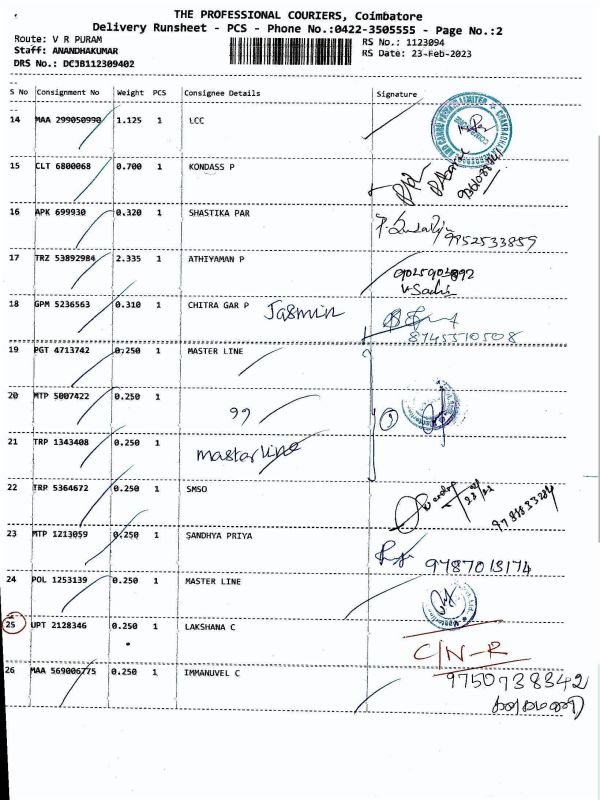 THE PROFESSIONAL COURIERS, Coimbatore
Delivery Runsheet - PCS - Phone No.:0422-3505555 - Page No.:2
Route: V R PURAM
RS No.: 1123094
Staff: ANANDHAKUMAR
RS Date: 23-Feb-2023
DRS No.: DCJB112309402
S No Consignment No Weight PCS Consignee Details Signature
14 MAA 299050990 1.125 1 LCC
15 CLT 6800068 0.700 1 KONDASS P
16 APK 699930 0.320 1 SHASTIKA PAR
9952533859
17 TRZ 53892984 2.335 1 ATHIYAMAN P
18 GPM 5236563 0.310 1 CHITRA GAR P Jasmin
8745510508
19 PGT 4713742 0.250 1 MASTER LINE
20 MTP 5007422 0.250 1 99
21 TRP 1343408 0.250 1 mastarline
22 TRP 5364672 0.250 1 SMSO
23 MTP 1213059 0.250 1 SANDHYA PRIYA
9787013174
24 POL 1253139 0.250 1 MASTER LINE
25 UPT 2128346 0.250 1 LAKSHANA C
C/N-R
26 MAA 569006775 0.250 1 IMMANUVEL C
9750738342